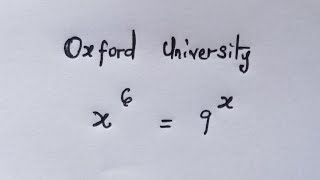 Oxford University
x⁶ = 9ˣ